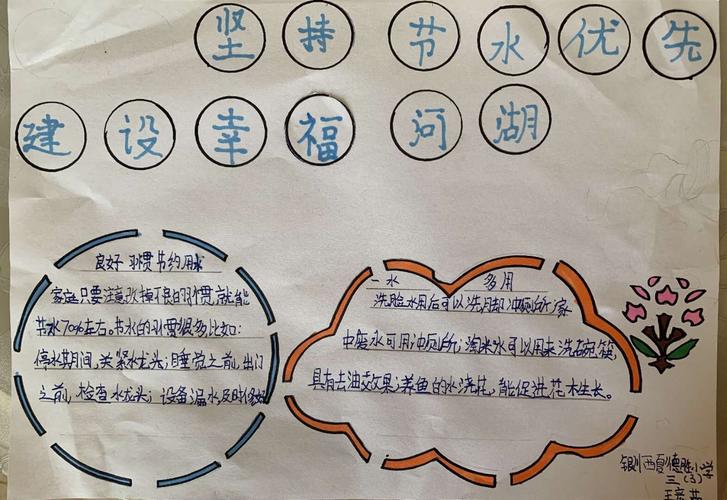 坚持 节水优先
建设幸福 河湖
良好习惯节约用水
家庭只要注意改掉不良的习惯,就能
节水70%左右。节水的习惯很多,比如:
停水期间,关紧水龙头;睡觉之前,出门
之前,检查水龙头;设备漏水,及时修好
一水 多用
洗脸水用后可以洗脚,冲厕所,家
中废水可用冲厕所;淘米水可以用来洗碗筷,
具有去油效果;养鱼的水浇花,能促进花木生长。
银川西夏德胜小学
三(3)